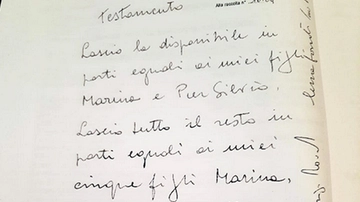 Testamento
Alla raccolta n°
Lascio la disponibile in
parti eguali ai miei figli
Marina e Pier Silvio.
Lascio tutto il resto in
parti eguali ai miei
cinque figli Marina,